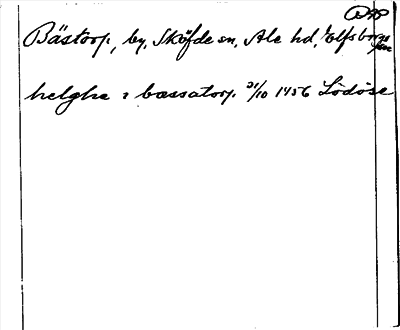 Bästorp, by, Sköfde sn, Ale hd, Elfsborgs
län
helghe i bæssatorp. 31/10 1456 Lödöse